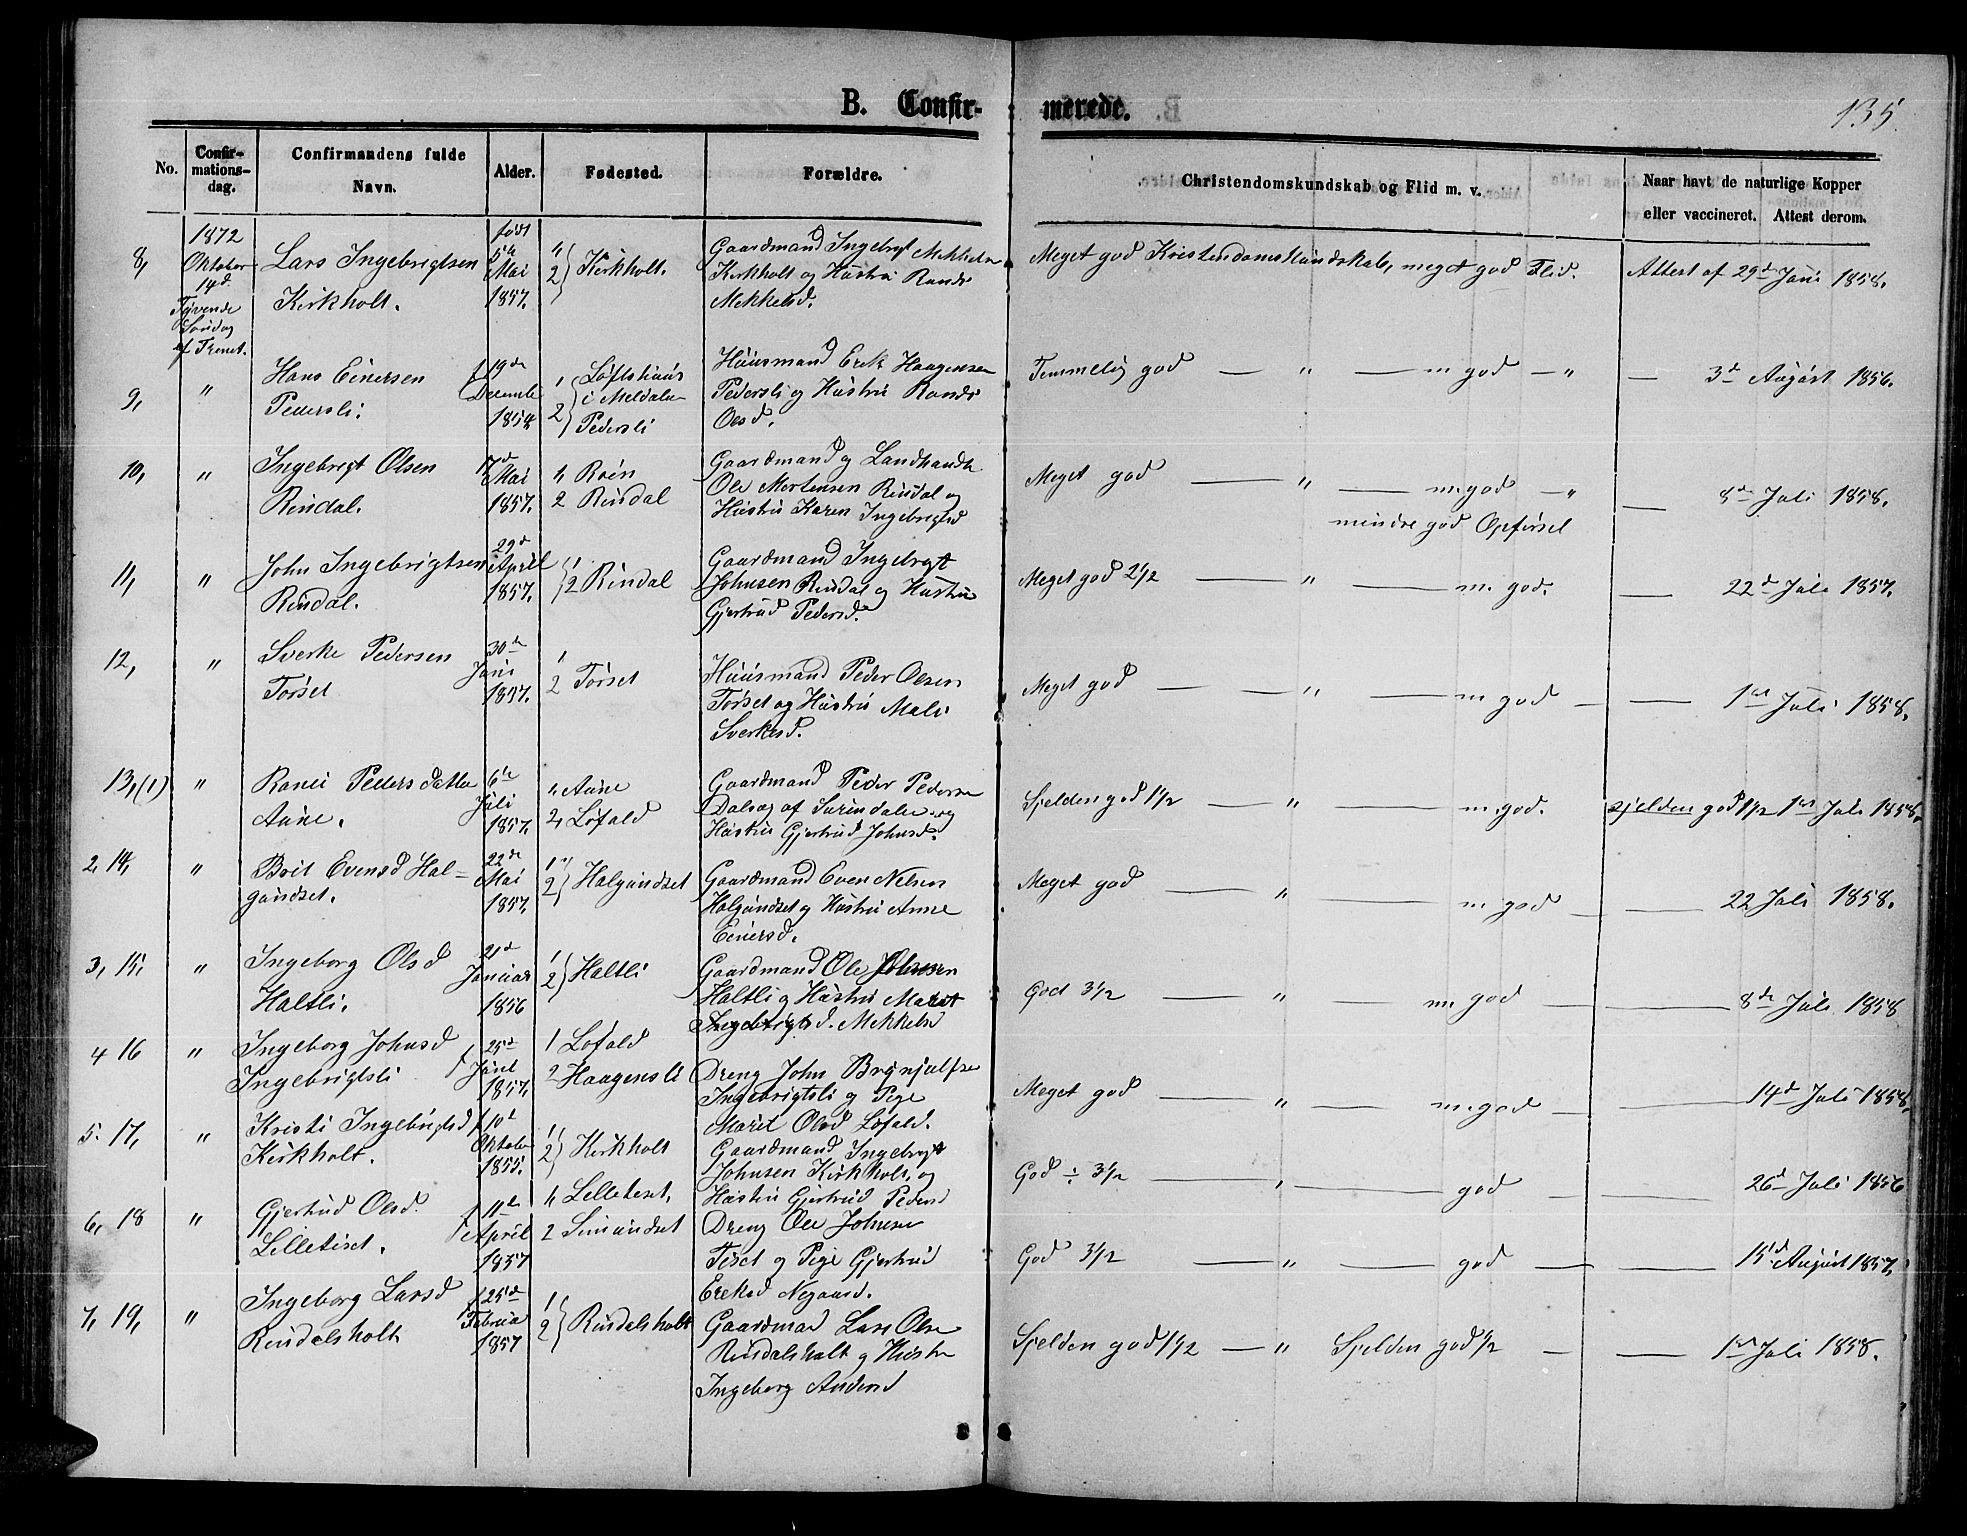 B. Confir-
merede.
135.
No.
Confir-
mations-
dag.
Confirmandens fulde
Navn.
Alder.
Fødested.
Forældre.
Christendomskundskab og Flid m. v.
Naar havt de naturlige Kopper
eller vaccineret. Attest derom.
8,
1872
Oktober
14d
Tyvende
Søndag
ef Trenet.
Lars Ingebrigtsen
Kirkholt.
født
Mai
1857.
"
2 Kirkholt.
Gaardmand Ingebrigt Mekkels
Kirkholt og Hustru Randi
Mekkelsd.
Meget god Kristendomskundskab, meget god Flid.
Attest af 29de Juni 1858.
9,
"
Hans Einersen
Pedersli.
19de
Decembe
1854
1
2
Løftshaug
i Meldalen
Pedersli
Huusmand Erek Haagensen
Pedersli og Hustru Randi
Olsd.
Temmelig god — " — m god — "
— 3d August 1856.
10,
"
Ingebrigt Olsen
Rindal.
17d
Mai
1857.
"
Roen
2 Rindal
Gaardmand og Landhandle
Ole Mortensen Rindal og
Hustru Karen Ingebrigtsd
Meget god — " — m. god — "
mindre god Opførsel
— 8de Juli 1858.
11,
"
John Ingebrigtsen
Rindal.
29d
April
1857.
"
2 Rindal
Gaardmand Ingebrigt
Johnsen Rindal og Hustru
Gjertrud Pedersd.
Meget god 2½ — " — m. god.
— 22d Juli 1857.
12,
"
Sverke Pedersen
Torset
30de
Juni
1857.
1
2 Torset
Huusmand Peder Olsen
Torset og Hustru Mali
Sverkesd.
Meget god — " — m god —
— 1st Juli 1858.
13, (1)
"
Ranei Pedersdatter
Aune.
6te
Juli
1857.
" Aune
2, Løfald
Gaardmand Peder Pedersen
Dalsæg af Surendalen og
Hustru Gjertrud Johnsd.
Sjelden god 1½ — " — m. god.
sjelden god 1½ 1st Juli 1858.
2, 14,
"
Brit Evensd Hal-
gundset.
22de
Mai
1857.
1
2 Halgundset
Gaardmand Even Nelsen
Halgundset og Hustru Anne
Einersd.
Meget god — " — m god —
— 22 Juli 1858.
3, 15,
"
Ingeborg Olsd
Haltli.
21d
Januar
1856
1
2 Haltli
Gaardmand Ole Johnsen
Haltli og Hustru Marit
Ingebrigtsd. Mekkelsd
God 3½ — " — m. god —
— 8de Juli 1858
4 16
"
Ingeborg Johnsd
Ingebrigtsli
25d
Juni
1857.
1 Løfald
2 Haagensli
Dreng John Brynjulfsen
Ingebrigtsli og Pige
Marit Olsd Løfald.
Meget god — " — m. god —
— 14d Juli 1858.
5. 17,
"
Kristi Ingebrigtsd
Kirkholt.
10d
Oktober
1855.
"
2 Kirkholt
Gaardmand Ingebrigt
Johnsen Kirkholt, og
Hustru Gjertrud Pedersd
God ÷ 3½ — " — god —
— 26d Juli 1856
6, 18
"
Gjertrud Olsd.
Lilletiset.
11te
April
1857
" Lilletiset,
2 Simundset
Dreng Ole Johnsen
Tiset og Pige Gjertrud
Ereksd Nygaard.
God 3½ — " — god —
— 15d August 1857.
7, 19,
"
Ingeborg Larsd
Rindalsholt
f 25d
Februa
1857
1
2 Rindalsholt
Gaardmad Lars Olse
Rindalsholt og Hustru
Ingeborg Andersd
Sjelden god 1½ — " Sjelden god ½ —
— 1st Juli 1858.